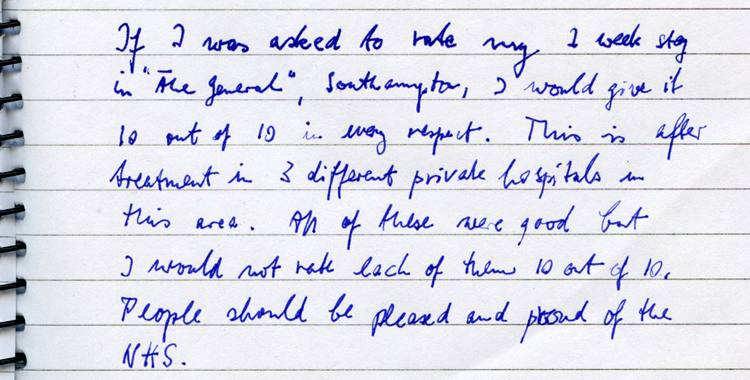 If I was asked to rate my 1 week stay
in "The General", Southampton, I would give it
10 out of 10 in every respect. This is after
treatment in 3 different private hospitals in
this area. All of these were good but
I would not rate each of them 10 out of 10.
People should be pleased and proud of the
NHS.